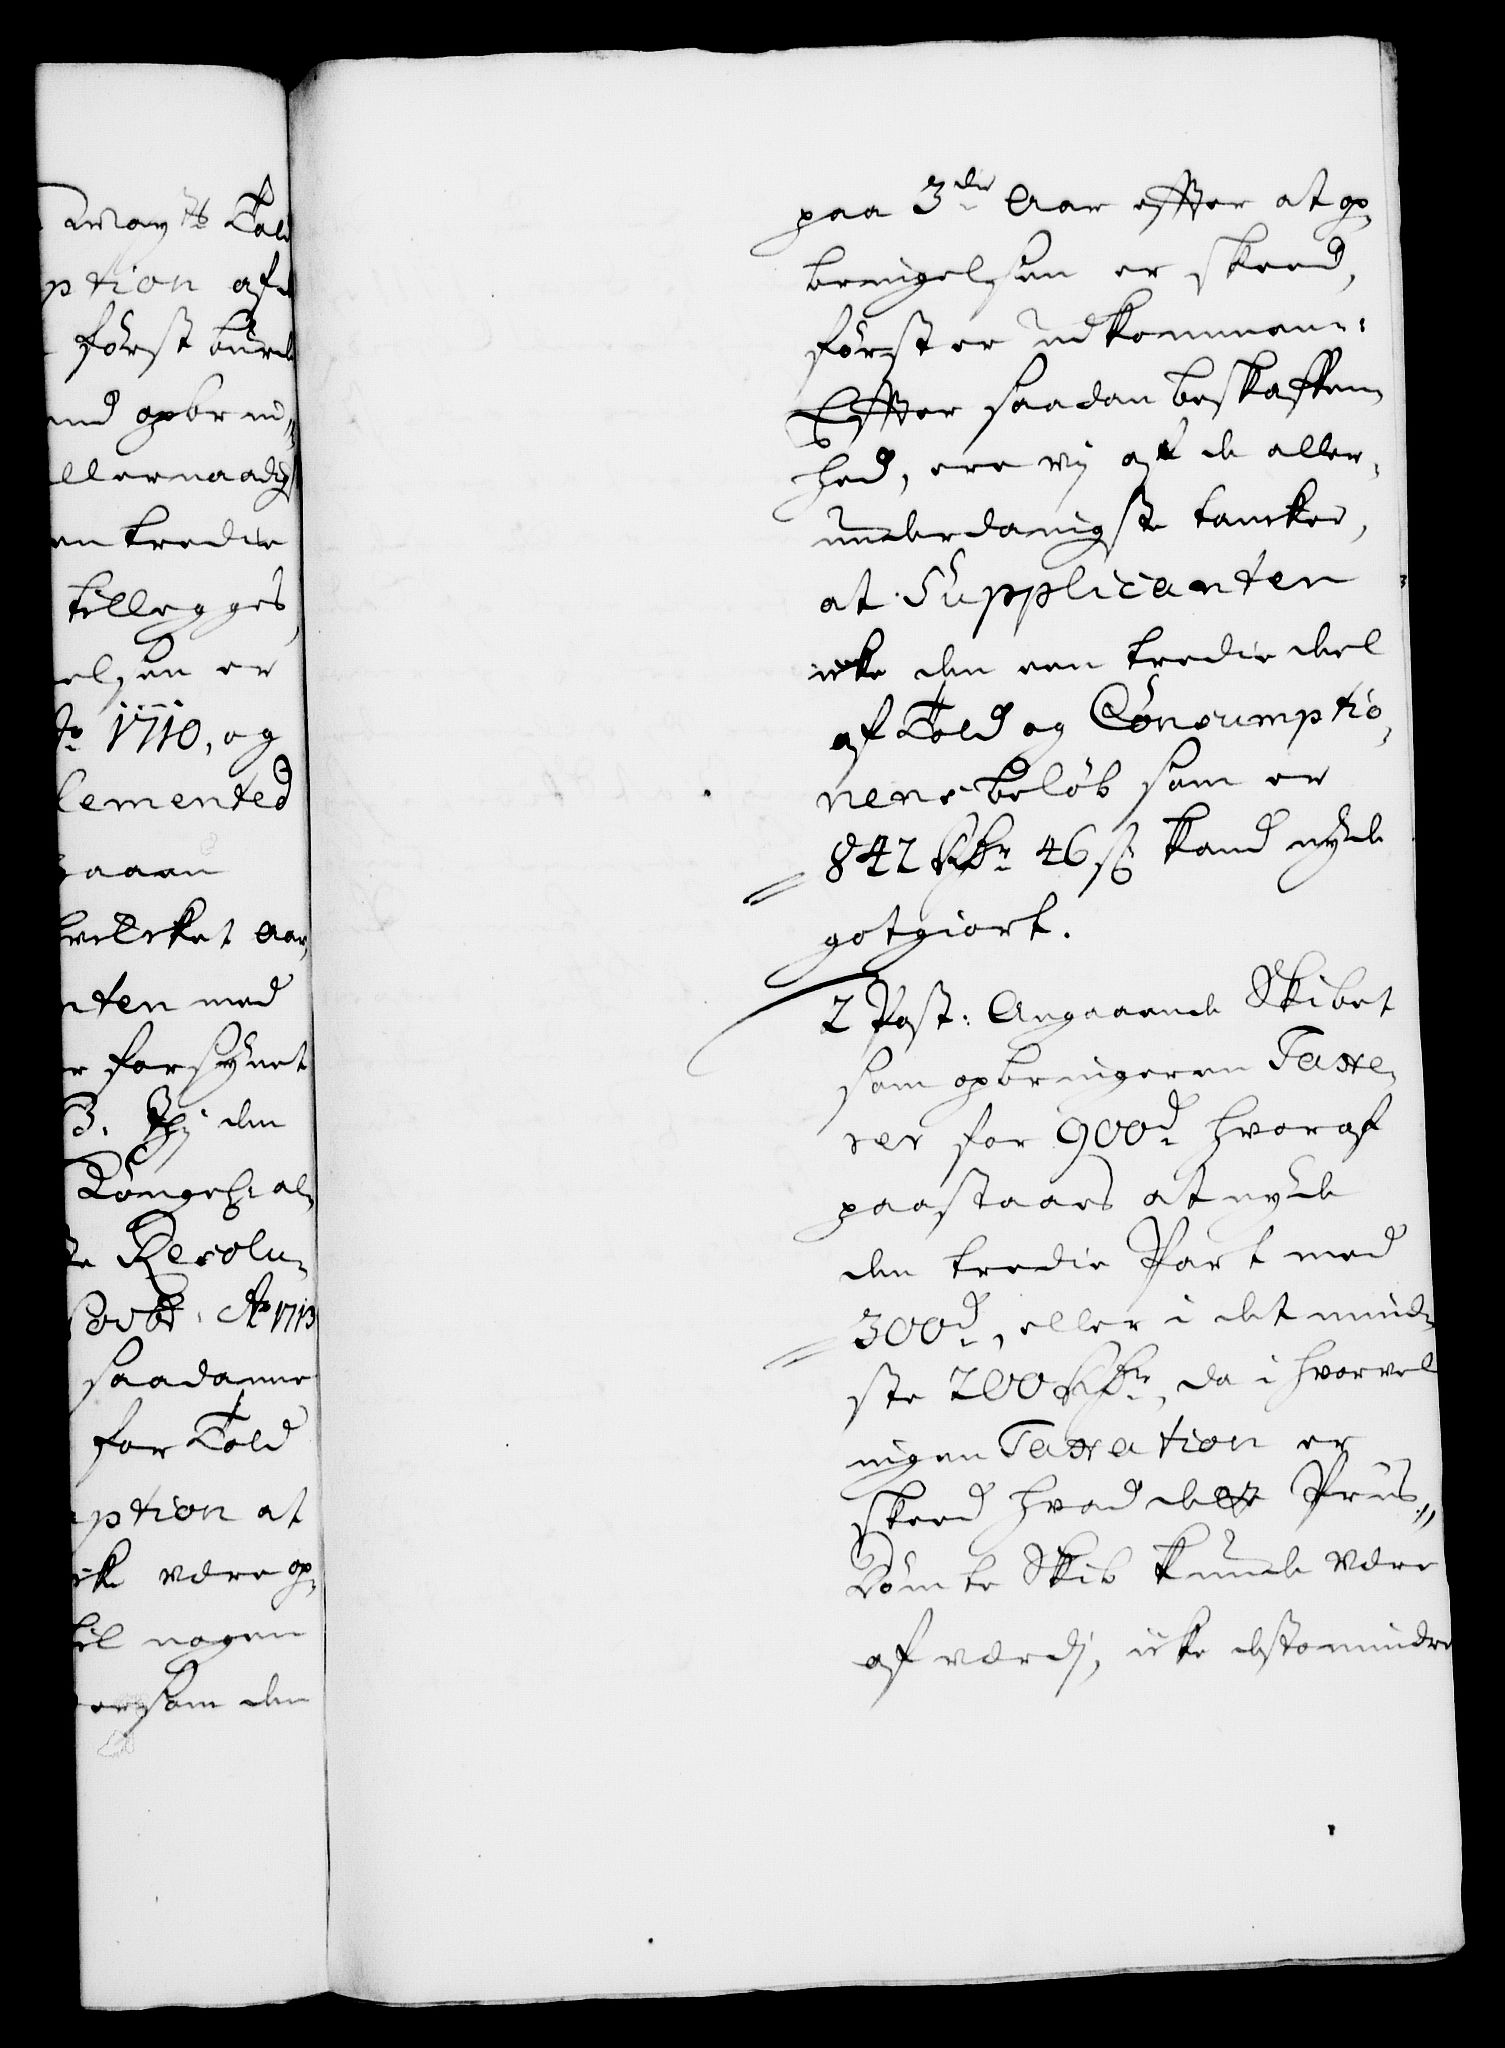 Told
ption af
först burde
ind opbrin„
llernaadigst
en tredie
tillegges,
elsen er
Ao 1710, og
lemented
aaen
hvilcket Aar,
nten med
r forsÿnet
3. den
Kongel: al„
te Resolu„
Ao 1713
saadanne
for Told
ption at
ick være op„
til nogen
som den
paa 3die Aar effter at op„
bringelsen er skeed,
först er udkommen:
Effter saadan beskaffen„
hed, ere vij af de aller„
underdanigste tancker,
at Supplicanten
icke den een tredie deel
af Told og Consumptio„
nens beløb som er
842 Rdr 46 ß kand nyde
gotgiort.
2 Post: Angaaende Skibet
som opbringeren Taxe„
rer for 900d hvoraf
paastaaes at nyde
den tredie Part med
300d, eller i det mind„
ste 200 Rdr, da i hvorvel
ingen Taxation er
skeed hvad dette Priis„
Dömte Skib kunde være
af værdj, icke destomindre